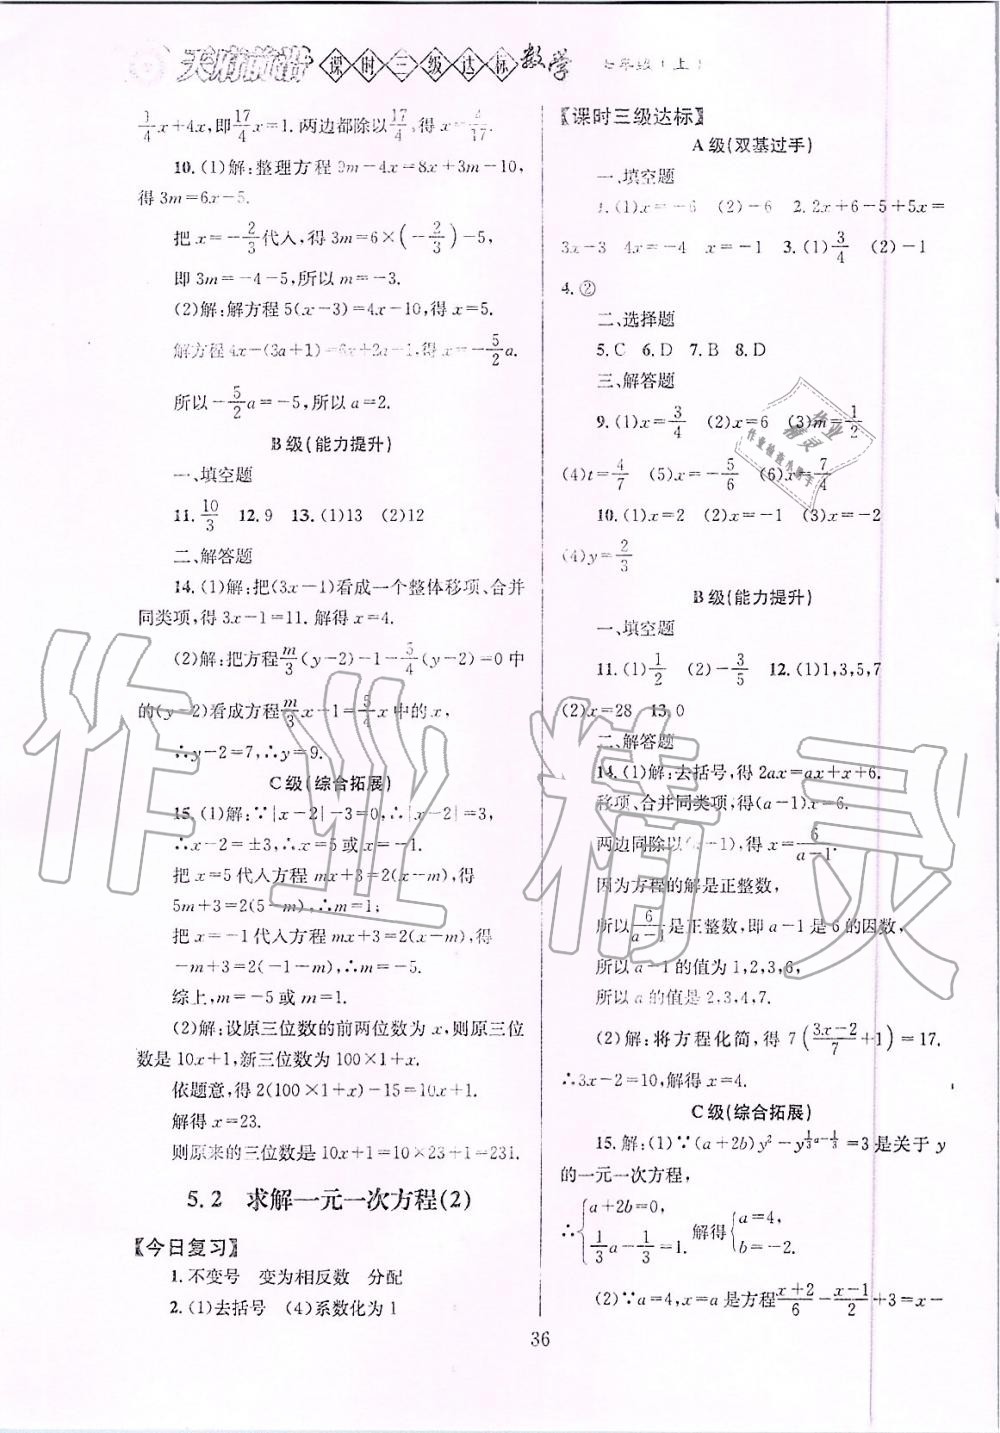 天府前沿 课时三级达标 数学 七年级(上)
1/4x+4x,即17/4x=1.两边都除以17/4,得 x=4/17.
10.(1)解:整理方程 9m-4x=8x+3m-10,
得 3m=6x-5.
把 x=-2/3代入,得 3m=6×(-2/3)-5,
即 3m=-4-5,所以 m=-3.
(2)解:解方程 5(x-3)=4x-10,得 x=5.
解方程4x-(3a+1)=6x+2a-1,得 x=-5/2a.
所以-5/2a=-5,所以 a=2.
B级(能力提升)
一、填空题
11.10/3 12.9 13.(1)13 (2)12
二、解答题
14.(1)解:把(3x-1)看成一个整体移项、合并
同类项,得 3x-1=11.解得 x=4.
(2)解:把方程m/3(y-2)-1-5/4(y-2)=0中
的(y-2)看成方程m/3x-1=5/4x中的x,
∴y-2=7,∴y=9.
C级(综合拓展)
15.(1)解:∵|x-2|-3=0,∴|x-2|=3,
∴x-2=±3,∴x=5或x=-1.
把 x=5代入方程 mx+3=2(x-m),得
5m+3=2(5-m),∴m=1;
把 x=-1代入方程 mx+3=2(x-m),得
-m+3=2(-1-m),∴m=-5.
综上,m=-5或m=1.
(2)解:设原三位数的前两位数为 x,则原三位
数是10x+1,新三位数为100×1+x.
依题意,得 2(100×1+x)-15=10x+1,
解得 x=23.
则原来的三位数是 10x+1=10×23+1=231.
5.2 求解一元一次方程(2)
【今日复习】
1.不变号 变为相反数 分配
2.(1)去括号 (4)系数化为1
【课时三级达标】
A级(双基过手)
一、填空题
1.(1)x=-6 (2)-6 2.2x+6-5+5x=
3x-3 4x=-4 x=-1 3.(1)3/4 (2)-1
4.②
二、选择题
5.C 6.D 7.B 8.D
三、解答题
9.(1)x=3/4 (2)x=6 (3)m=1/2
(4)t=4/7 (5)x=-5/6 (6)x=7/4
10.(1)x=2 (2)x=-1 (3)x=-2
(4)y=2/3
B级(能力提升)
一、填空题
11.(1)1/2 (2)-3/5 12.(1)1,3,5,7
(2)x=28 13.0
二、解答题
14.(1)解:去括号,得 2ax=ax+x+6.
移项、合并同类项,得(a-1)x=6.
两边同除以(a-1),得 x=6/(a-1).
因为方程的解是正整数,
所以6/(a-1)是正整数,即 a-1是6的因数,
所以 a-1的值为1,2,3,6,
所以 a的值是2,3,4,7.
(2)解:将方程化简,得 7((3x-2)/7+1)=17.
∴3x-2=10,解得 x=4.
C级(综合拓展)
15.解:(1)∵(a+2b)y²-y^(1/3a-1/3)=3是关于 y
的一元一次方程,
∴{a+2b=0, 1/3a-1/3=1. 解得{a=4, b=-2.
(2)∵a=4,x=a是方程(x+2)/6-(x-1)/2+3=x-
36
作业精灵
作业精灵
作业检查小帮手